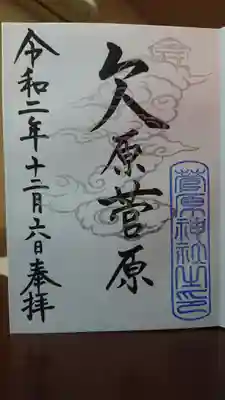 欠原菅原
菅原神社之印
令和二年十二月六日奉拝